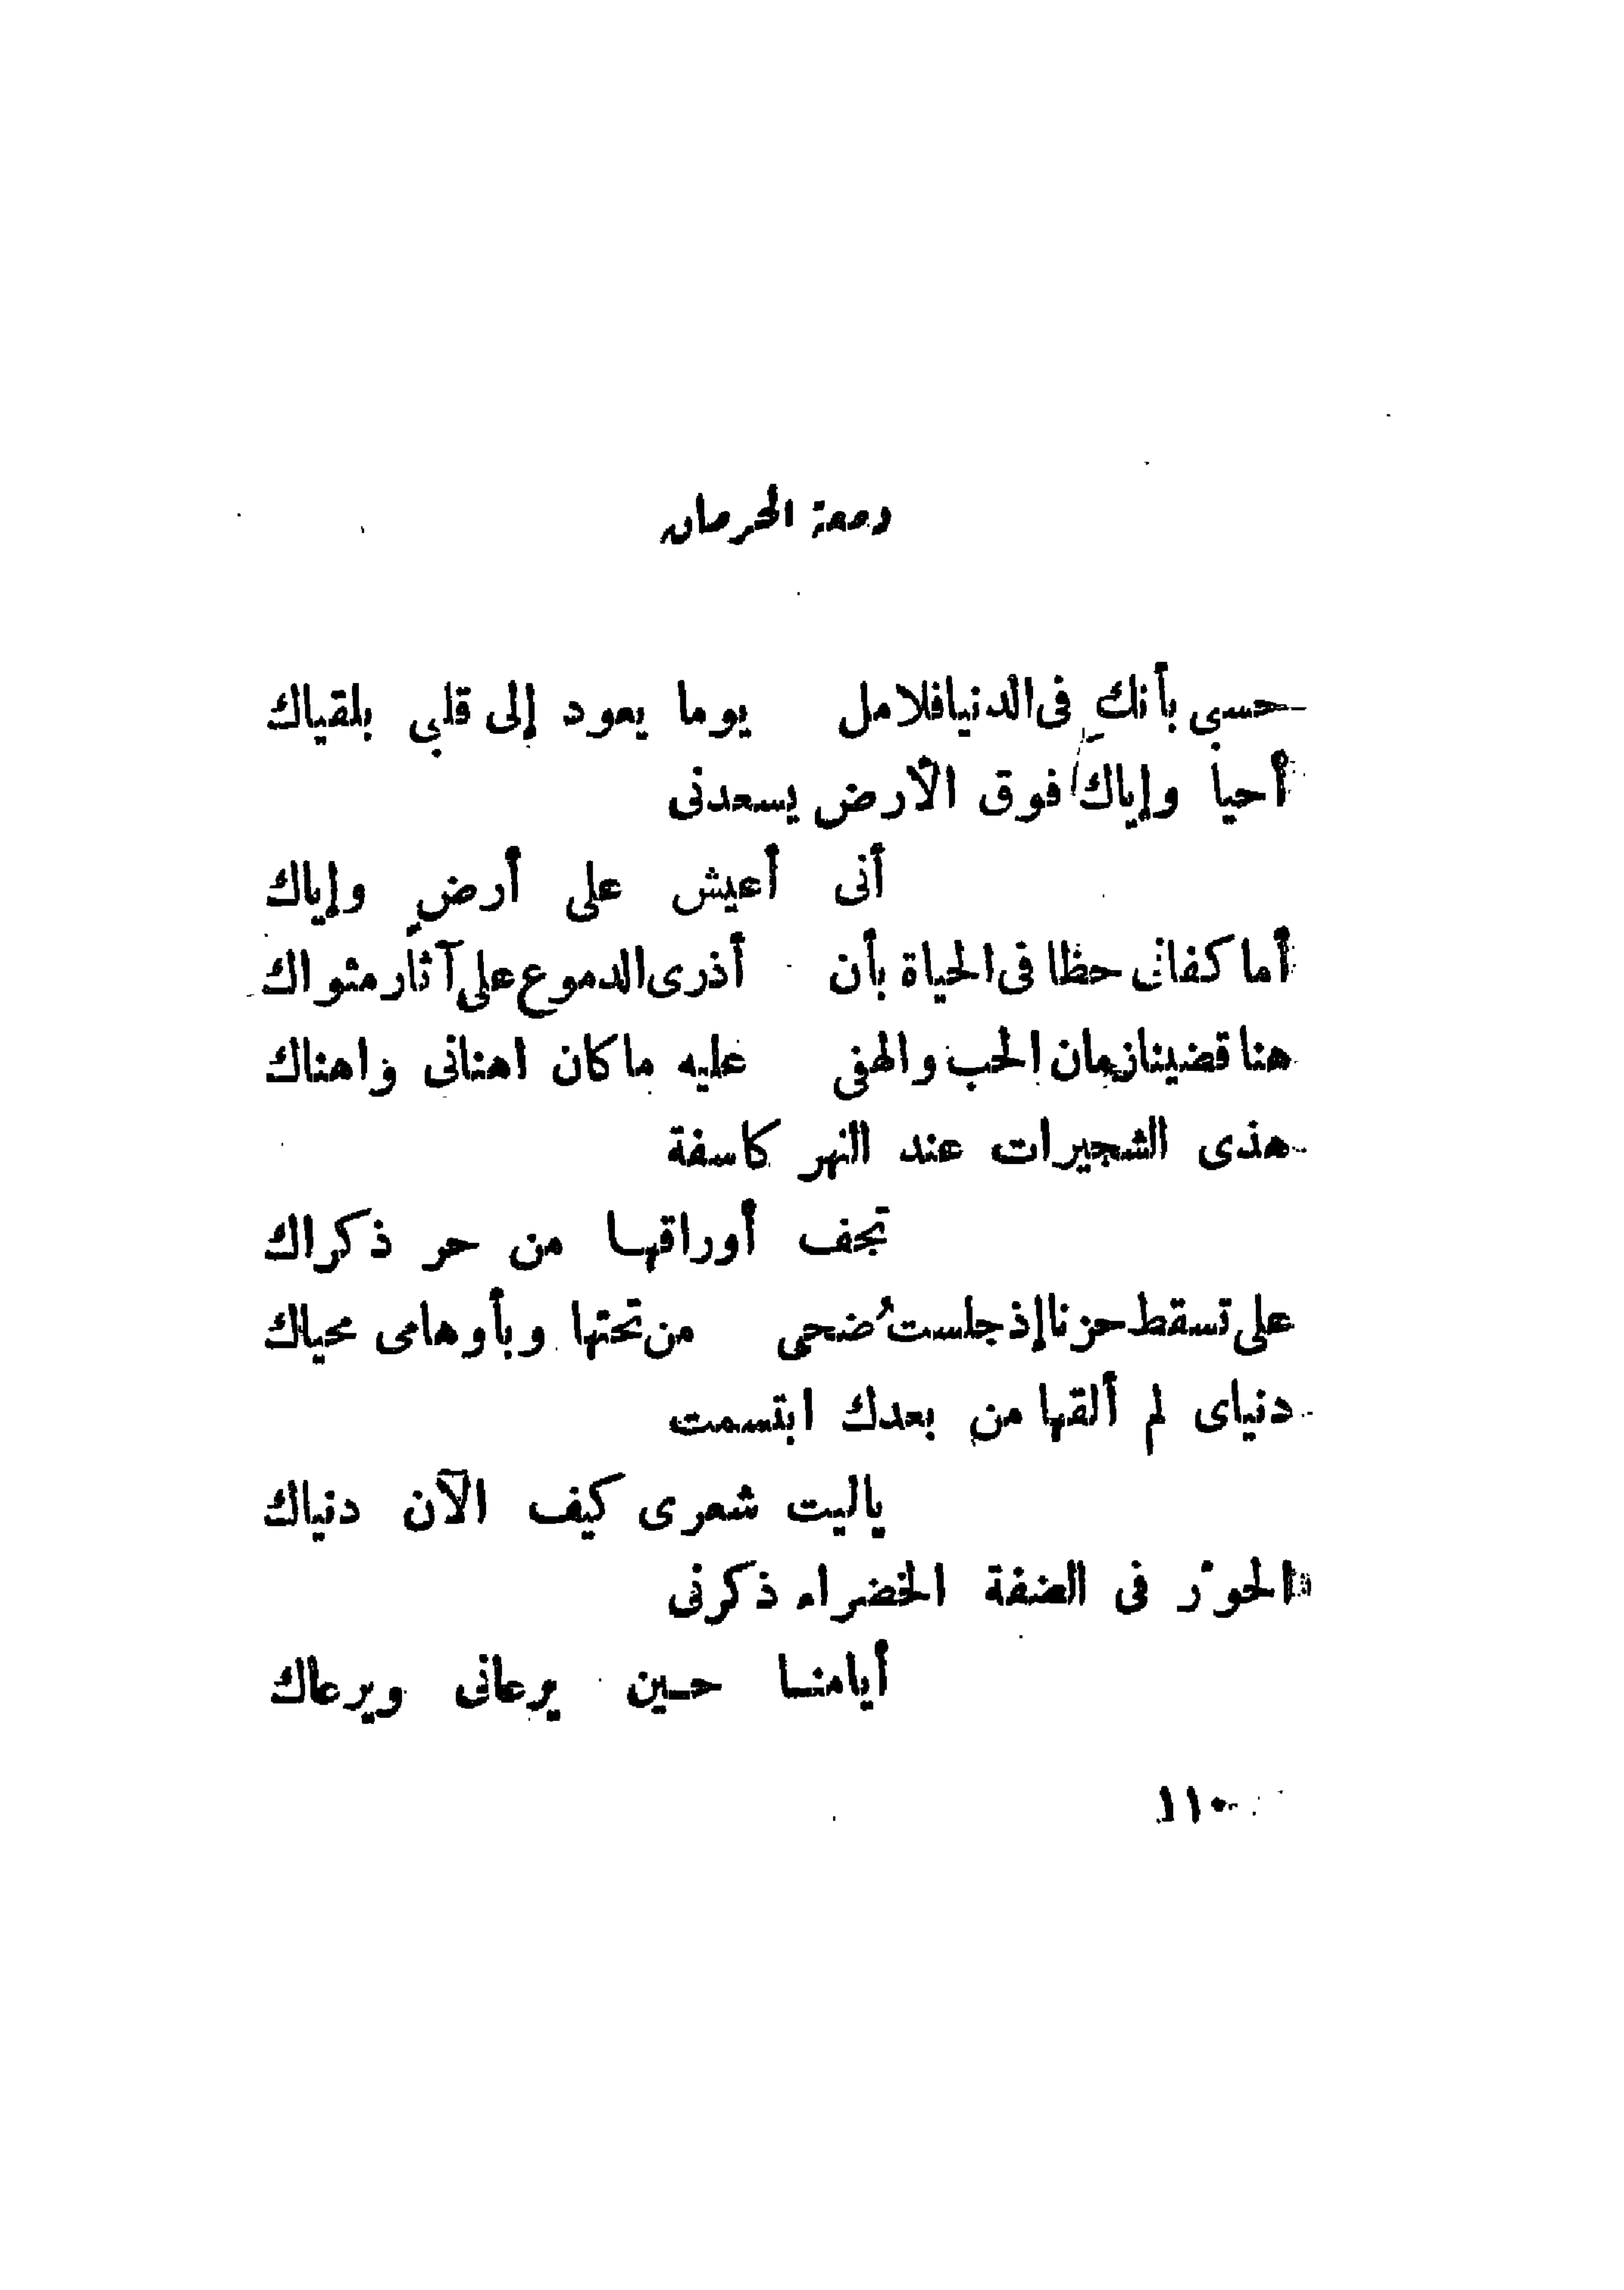 دمعة الحرمان
حسبى بأنكِ فى الدنيا فلامل يوما يعود إلى قلبى بلقياك
أحيا وإياك فوق الأرض يسعدنى
أنى أعيش على أرضٍ وإياك
أما كفانى حظا فى الحياة بأن أذرى الدموع على آثار مثواك
هنا قضينا زمان الحب والهفى عليه ما كان اهنانى واهناك
هذى الشجيرات عند النهر كاسفة
تجف أوراقها من حر ذكراك
على تسقط حزنا إذ جلست ُضحى من تحتها وبأوهامى محياك
دنياى لم ألقها من بعدك ابتسمت
ياليت شعرى كيف الآن دنياك
الحوْر فى الضفة الخضراء ذكرنى
أيامنا حين يرعانى ويرعاك
١١٠